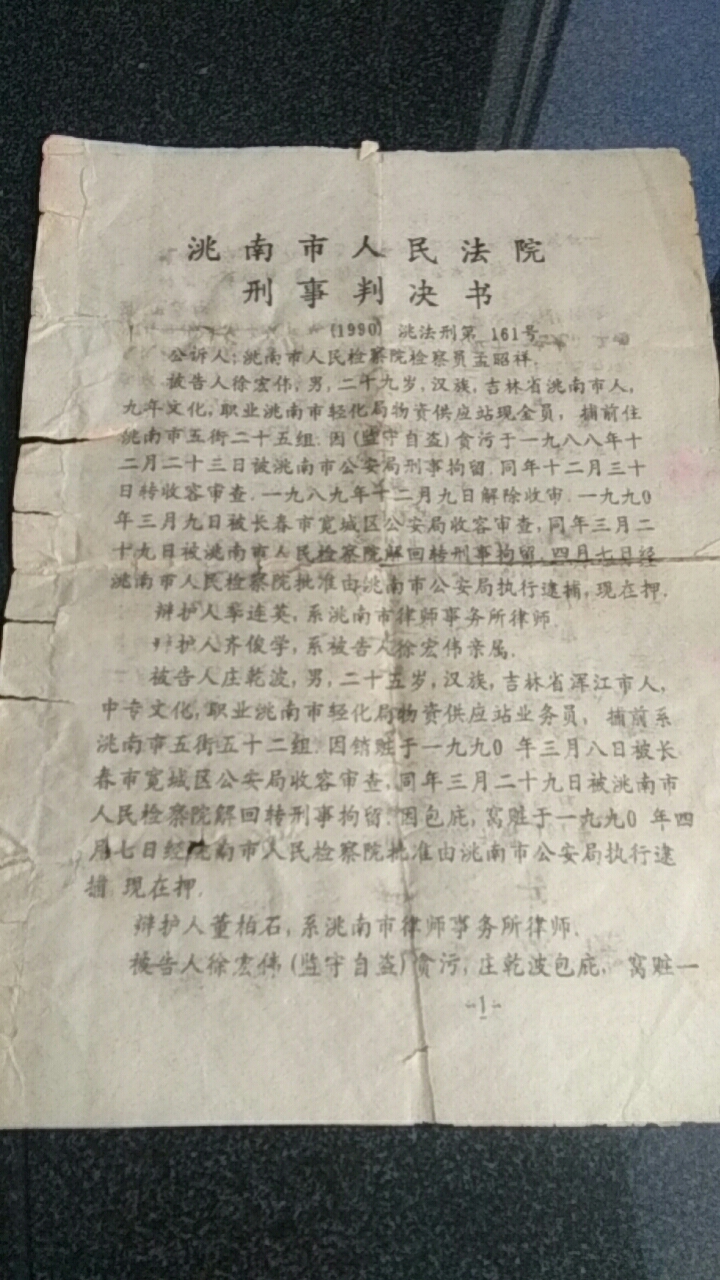 洮南市人民法院
刑事判决书
(1990) 洮法刑第 161号
公诉人:洮南市人民检察院检察员孟昭祥.
被告人徐宏伟,男,二十九岁,汉族,吉林省洮南市人,
九年文化,职业洮南市轻化局物资供应站现金员, 捕前住
洮南市五街二十五组.因(监守自盗)贪污于一九八八年十
二月二十三日被洮南市公安局刑事拘留.同年十二月三十
日转收容审查.一九八九年十二月九日解除收审.一九九0
年三月九日被长春市宽城区公安局收容审查,同年三月二
十九日被洮南市人民检察院解回转刑事拘留.四月七日经
洮南市人民检察院批准由洮南市公安局执行逮捕,现在押.
辩护人李连英,系洮南市律师事务所律师.
护人齐俊学,系被告人徐宏伟亲属.
被告人庄乾波,男,二十五岁,汉族,吉林省浑江市人,
中专文化,职业洮南市轻化局物资供应站业务员, 捕前系
洮南市五街五十二组.因销赃于一九九0 年三月八日被长
春市宽城区公安局收容审查,同年三月二十九日被洮南市
人民检察院解回转刑事拘留.因包庇,窝赃于一九九0 年四
月七日经洮南市人民检察院批准由洮南市公安局执行逮
捕 现在押.
辩护人董柏石,系洮南市律师事务所律师.
被告人徐宏伟(监守自盗)贪污,庄乾波包庇, 窝赃一
-1-